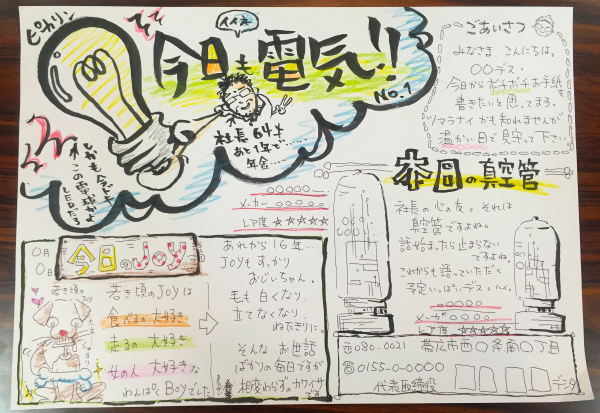 ピカリン
今日も電気!!
No.1
社長64才
あと1年で
年金……
しかも今どき
この電球かよ
LEDだろ
ごあいさつ
みなさま こんにちは。
〇〇デス。
今日からボチボチお手紙を
書きたいと思ってます。
ツマラナイかも知れませんが
温かい目で見守って下さい。
本日の真空管
社長の心の友。それは
真空管ですよね。
話始まったら止まらない
ですよね。
これからも語っていただく
予定いっぱいデス、ハイ。
〇〇〇〇〇
メーカー 〇〇〇〇
レア度 ☆☆☆☆☆
〇〇〇〇
メーカー 〇〇〇〇
レア度 ☆☆☆☆☆
0月
0日
今日のJoy
若き頃の
Joy
若き頃のJoyは
食べるの大好き
走るの大好き
女の人 大好きな
わんぱくBoyでした
あれから16年…
Joyもすっかり
おじいちゃん。
毛も白くなり
立てなくなり
ねたきりに。
そんな お世話
ばかりの毎日ですが
相変わらずのカワイサ
です
〒080-0021 帯広市西〇条南〇丁目
☎0155-0-0000
代表取締役
データ